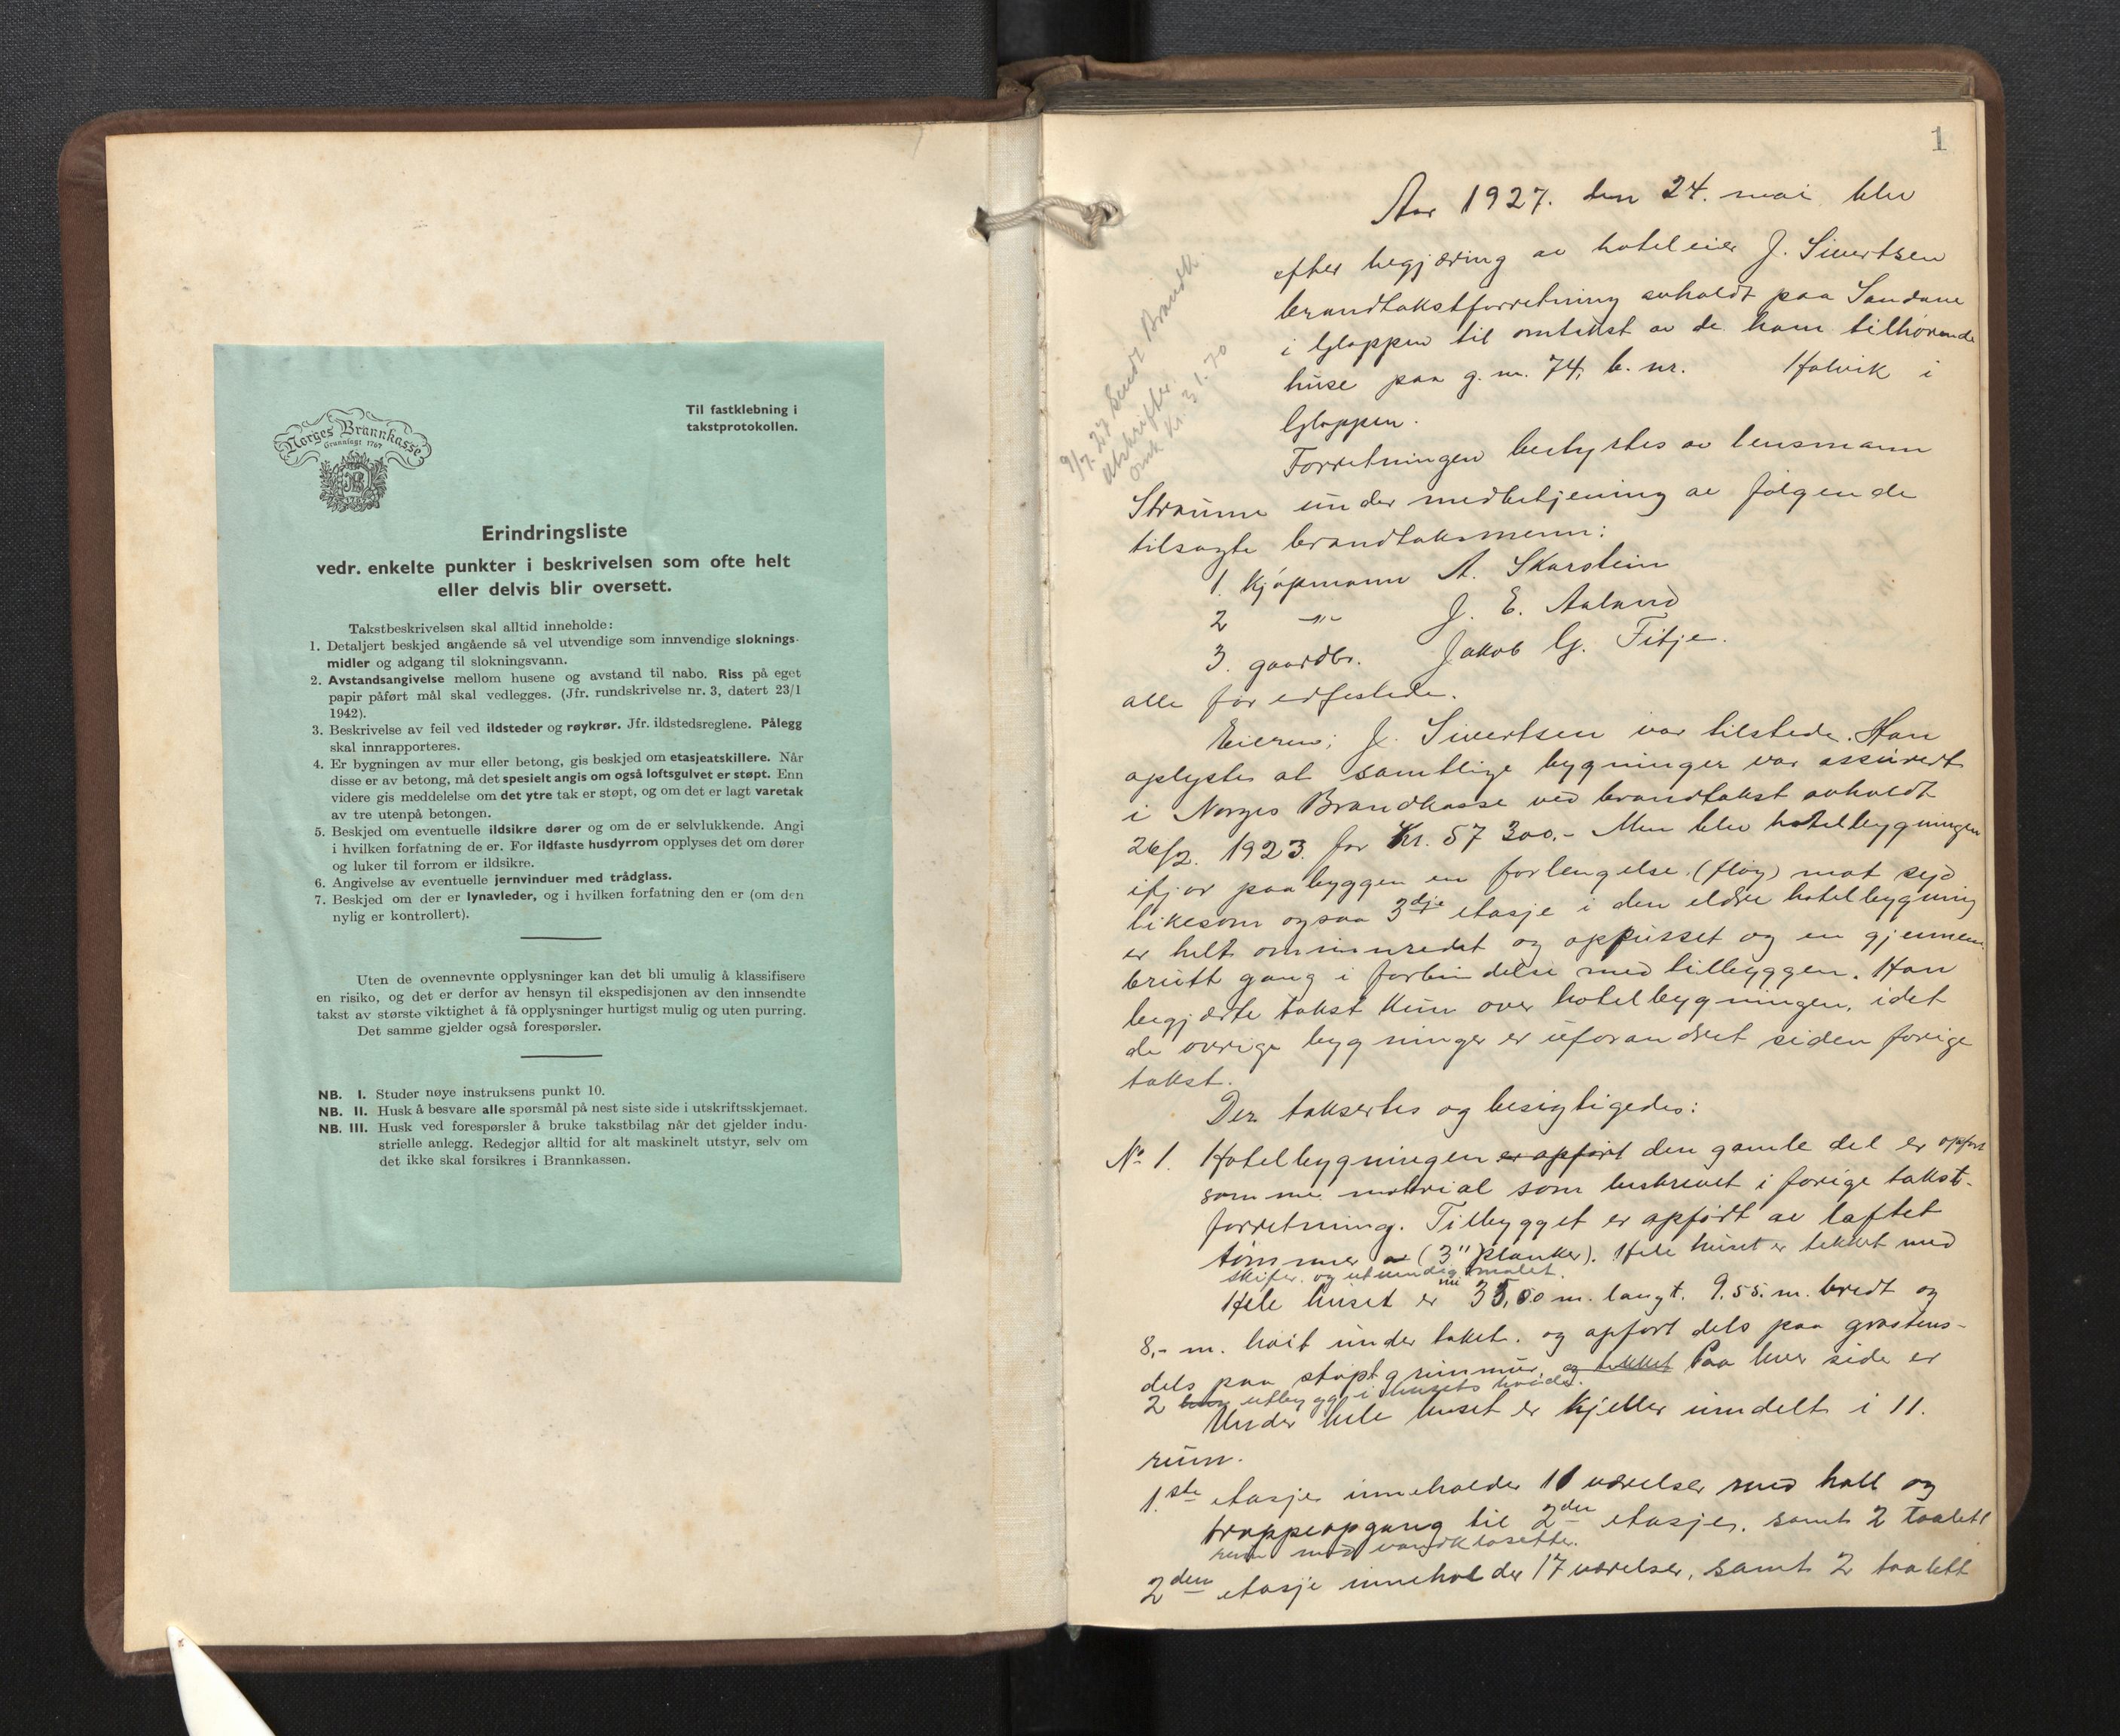 Til fastklebning i
takstprotokollen.
Norges Brannkasse
Grunnlagt 1767
Erindringsliste
vedr. enkelte punkter i beskrivelsen som ofte helt
eller delvis blir oversett.
Takstbeskrivelsen skal alltid inneholde:
1. Detaljert beskjed angående så vel utvendige som innvendige sloknings-
midler og adgang til slokningsvann.
2. Avstandsangivelse mellom husene og avstand til nabo. Riss på eget
papir påført mål skal vedlegges. (Jfr. rundskrivelse nr. 3, datert 23/1
1942).
3. Beskrivelse av feil ved ildsteder og røykrør. Jfr. ildstedsreglene. Pålegg
skal innrapporteres.
4. Er bygningen av mur eller betong, gis beskjed om etasjeatskillere. Når
disse er av betong, må det spesielt angis om også loftsgulvet er støpt. Enn
videre gis meddelelse om det ytre tak er støpt, og om det er lagt varetak
av tre utenpå betongen.
5. Beskjed om eventuelle ildsikre dører og om de er selvlukkende. Angi
i hvilken forfatning de er. For ildfaste husdyrrom opplyses det om dører
og luker til forrom er ildsikre.
6. Angivelse av eventuelle jernvinduer med trådglass.
7. Beskjed om der er lynavleder, og i hvilken forfatning den er (om den
nylig er kontrollert).
Uten de ovennevnte opplysninger kan det bli umulig å klassifisere
en risiko, og det er derfor av hensyn til ekspedisjonen av den innsendte
takst av største viktighet å få opplysninger hurtigst mulig og uten purring.
Det samme gjelder også forespørsler.
NB. I. Studer nøye instruksens punkt 10.
NB. II. Husk å besvare alle spørsmål på nest siste side i utskriftsskjemaet.
NB. III. Husk ved forespørsler å bruke takstbilag når det gjelder indu-
strielle anlegg. Redegjør alltid for alt maskinelt utstyr, selv om
det ikke skal forsikres i Brannkassen.
1
Aar 1927. den 24. mai blev
efter begjæring av hoteleier J. Sivertsen
brandtakstforretning avholdt paa Sandane
i Gloppen til omtakst av de ham tilhørende
huse paa g. nr. 74, b. nr. Holvik i
Gloppen.
9/7. 27 sendt Brandk.
utskrifter
Omk Kr. 31.70
Forretningen bestyrtes av lensmann
Straume under medbetjening av følgende
tilsagte brandtaksmenn:
1. Kjøpmann A. Skarstein
2 -"- J. E. Aaland
3. gaardbr. Jakob G. Fitje.
alle før edfestede.
Eieren, J. Sivertsen var tilstede. Han
oplyste at samtlige bygninger var assurert
i Norges Brandkasse ved brandtakst avholdt
26/2. 1923. for Kr. 57 300.- Men blev hotelbygningen
ifjor paabygget en forlengelse (fløy) mot syd
likesom ogsaa 3dje etasje i den eldre hotelbygning
er helt ominnredet og oppusset og en gjennem
brutt gang i forbindelse med tilbyggen. Han
begjærte takst kun over hotelbygningen, idet
de øvrige bygninger er uforandret siden forrige
takst.
Der taksertes og besigtigedes:
No 1. Hotelbygningen er opført den gamle del er opført
samme material som beskrevet i forrige takst-
forretning. Tilbygget er opført av laftet
tømmer (3" planker). Hele huset er tekket med
skifer og utvendig malet.
Hele huset er nu 35,50 m. langt. 9.55. m. bredt og
8,- m. høit under taket. og opført dels paa graastens-
dels paa støpt grunnmur, og tekket Paa hver side er
2 utbygg i husets høide.
Under hele huset er kjeller inndelt i 11.
rum.
1.ste etasje inneholder 10 værelser med hall og
trappeopgang til 2den etasje, samt 2 toalett
rum med vandklosetter.
2den etasje inneholder 17 værelser, samt 2 toalett